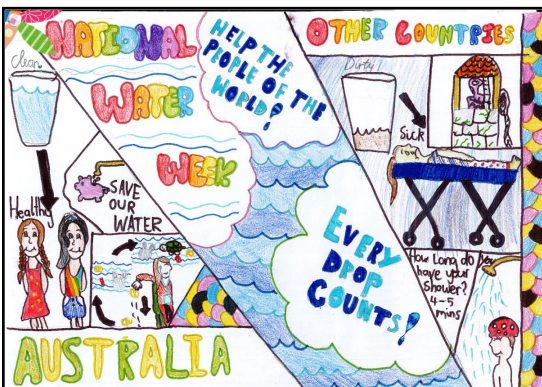 NATIONAL
WATER
WEEK
HELP THE
PEOPLE OF THE
WORLD!
OTHER COUNTRIES
Clean
Dirty
Sick
SAVE
OUR
WATER
Healthy
EVERY
DROP
COUNTS!
How long do
have your
Shower?
4-5
mins
AUSTRALIA